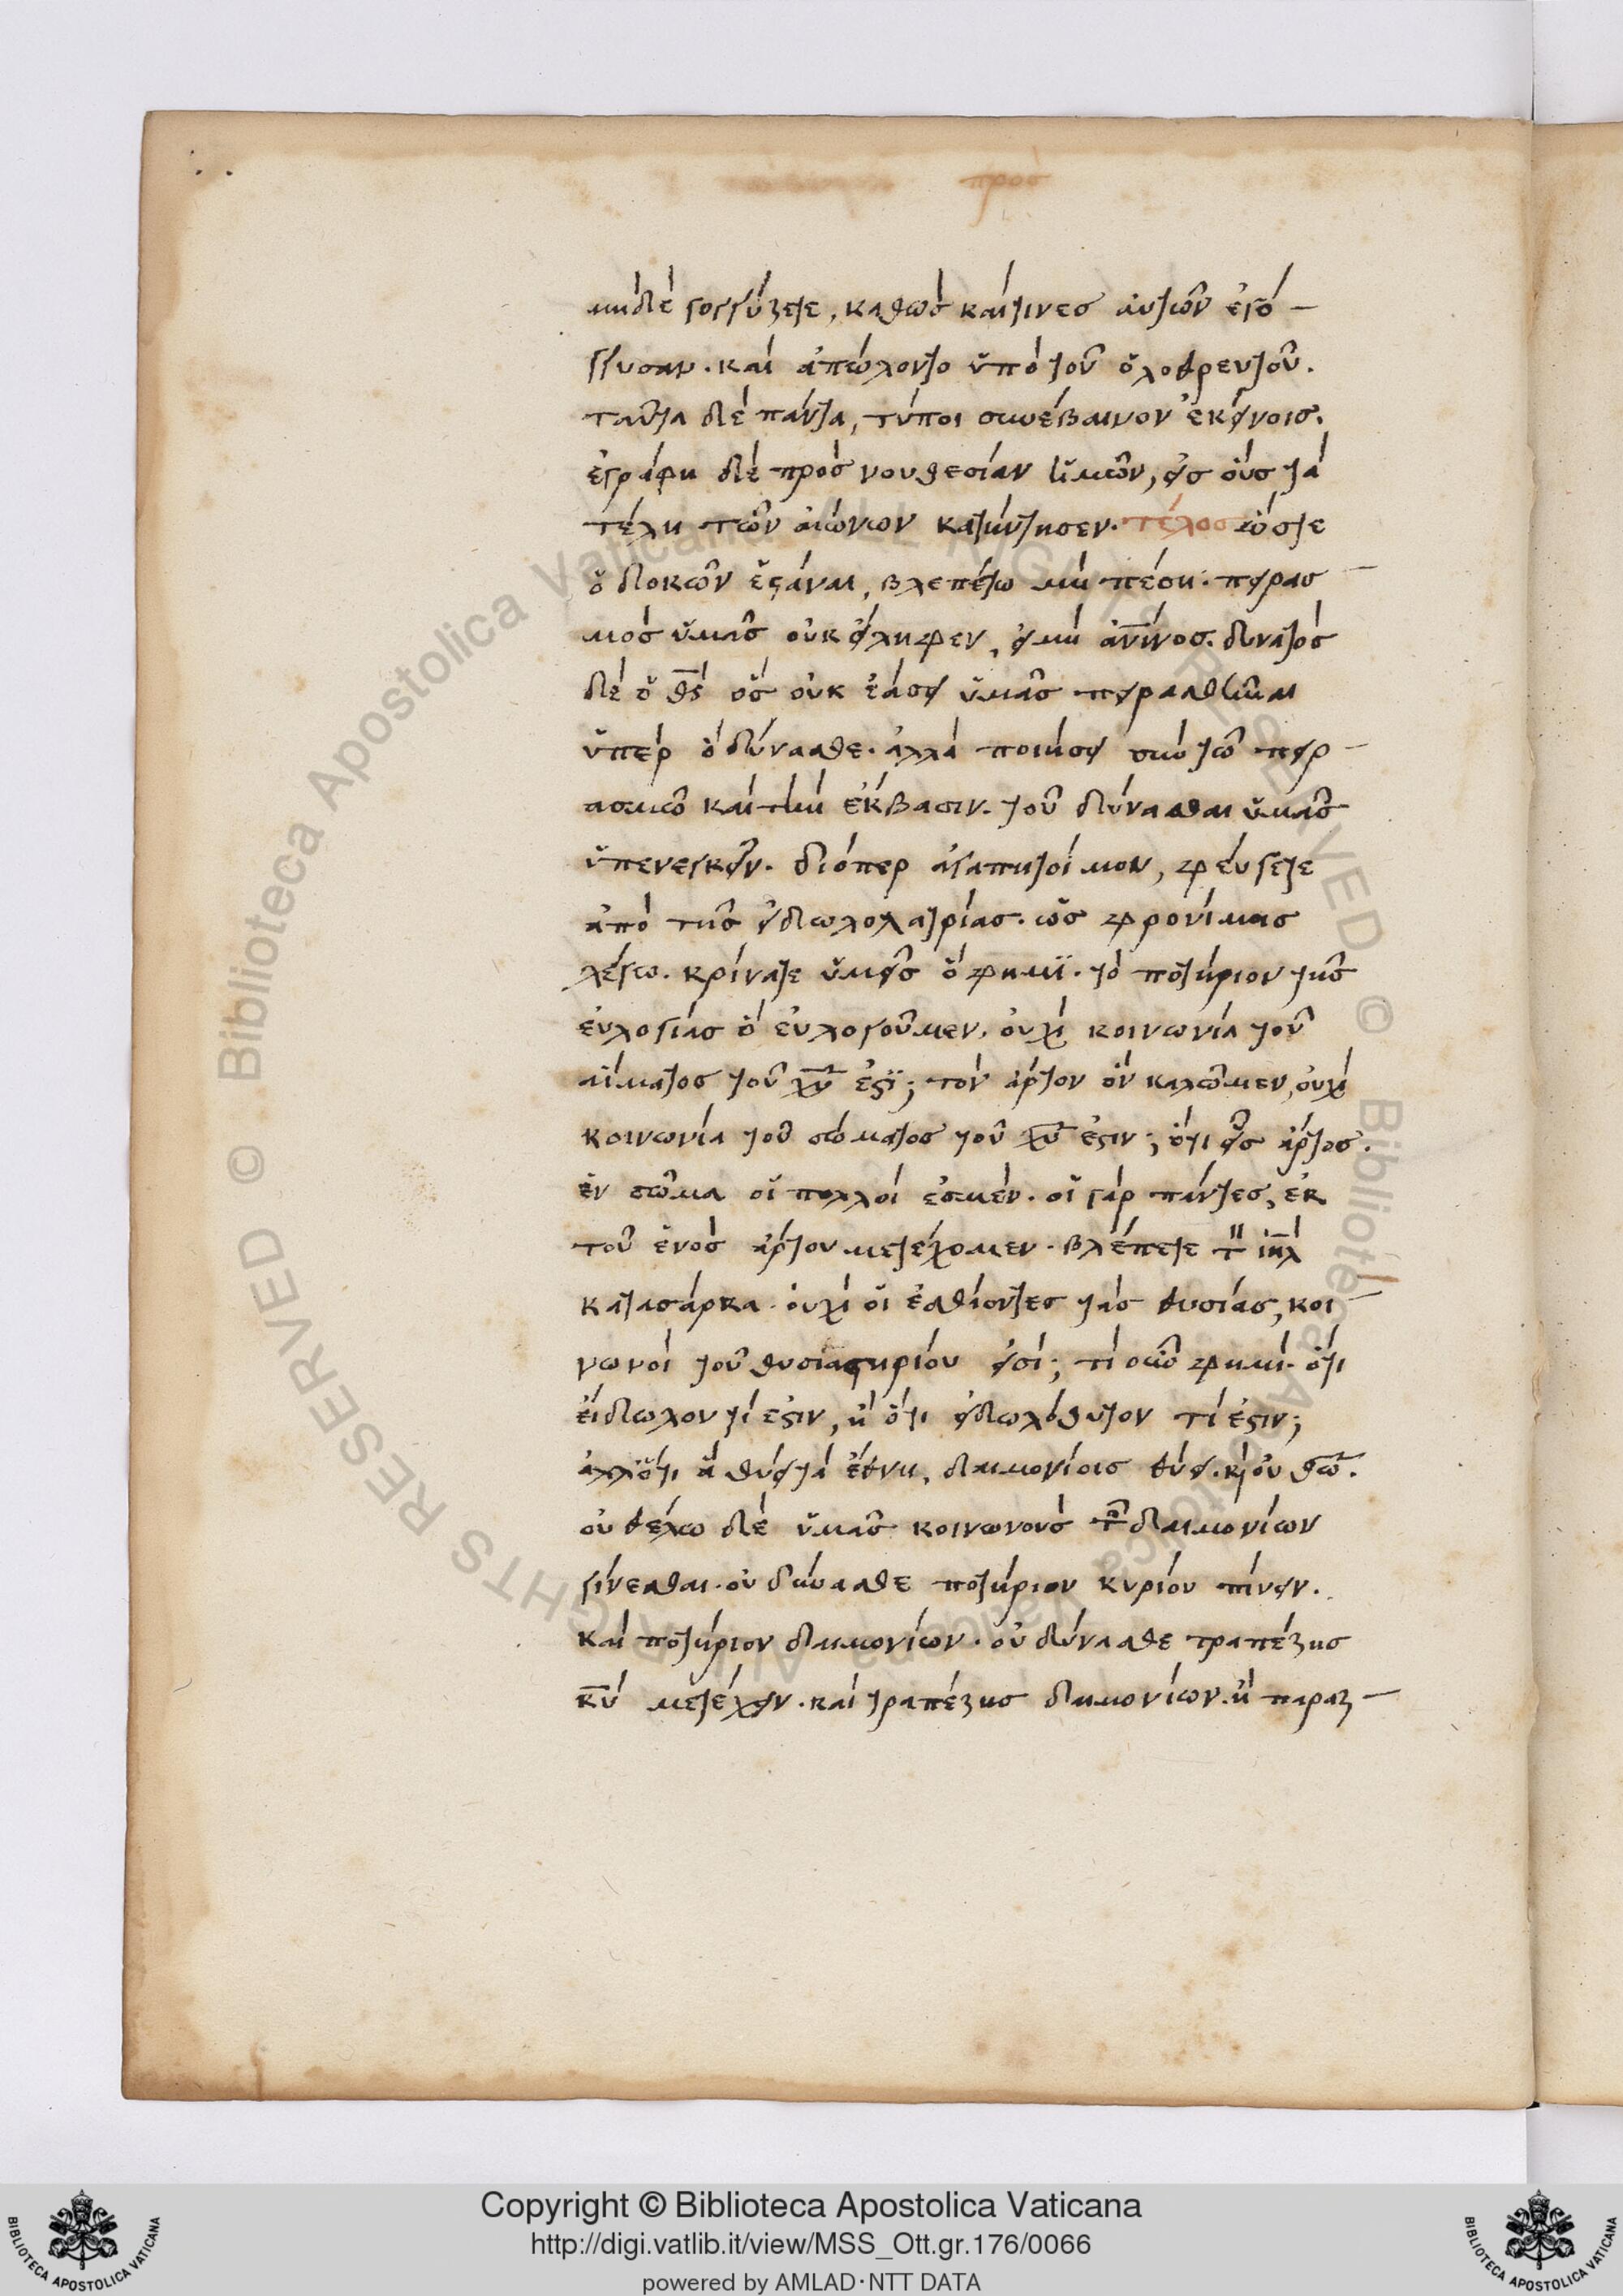 προσ
μηδὲ γογγύζετε, καθὼς καί τινες αὐτῶν ἐγό
γγυσαν. καὶ ἀπώλοντο ὑπὸ τοῦ ὀλοθρευτοῦ.
ταῦτα δὲ πάντα, τύποι συνέβαινον ἐκείνοις.
ἐγράφη δὲ πρὸς νουθεσίαν ἡμῶν, εἰς οὓς τὰ
τέλη τῶν αἰώνων κατήντησεν. τέλος ὥστε
ὁ δοκῶν ἑστάναι, βλεπέτω μὴ πέση. πειρασ
μὸς ὑμᾶς οὐκ εἴληφεν, εἰ μὴ ἀνινος. δυνατὸς
δὲ ὁ θς ὃς οὐκ ἐάσει ὑμᾶς πειρασθῆναι
ὑπὲρ ὃ δύνασθε. ἀλλὰ ποιήσει σὺν τῶ πειρ
ασμῶ καὶ τὴν ἔκβασιν. τοῦ δύνασθαι ὑμᾶς
ὑπενεγκεῖν. διόπερ ἀγαπητοί μου, φεύγετε
ἀπὸ τῆς εἰδωλολατρίας. ὡς φρονίμοις
λέγω. κρίνατε ὑμεῖς ὅ φημϊ. τὸ ποτήριον τῆς
εὐλογίας ὃ εὐλογοῦμεν, οὐχὶ κοινωνία τοῦ
αἵματος τοῦ χυ ἐστϊ; τὸν ἄρτον ὃν κλῶμεν, οὐχὶ
κοινωνία τοῦ σώματος τοῦ χυ ἐστιν; ὅτι εἷς ἄρτος.
ἓν σῶμα οἱ πολλοί ἐσμεν. οἱ γὰρ πάντες, ἐκ
τοῦ ἑνὸς ἄρτου μετέχομεν. βλέπετε τὸν ιηλ
κατα σάρκα. οὐχὶ οἱ ἐσθίοντες τὰς θυσίας, κοι
νωνοὶ τοῦ θυσιαστηρίου εἰσί; τί οὖν φημι. ὅτι
εἴδωλον τί ἐστιν, ἢ ὅτι εἰδωλόθυτον τί ἐστιν;
ἀλλ' ὅτι ἃ θύει τὰ ἔθνη, δαιμονίοις θύει. κὶ οὐ θω.
οὐ θέλω δὲ ὑμᾶς κοινωνοὺς τῶν δαιμονίων
γίνεσθαι. οὐ δύνασθε ποτήριον κυρίου πίνειν.
καὶ ποτήριον δαιμονίων. οὐ δύνασθε τραπέζης
κυ μετέχειν. καὶ τραπέζης δαιμονίων. ἢ παραζ
Copyright © Biblioteca Apostolica Vaticana
http://digi.vatlib.it/view/MSS_Ott.gr.176/0066
powered by AMLAD·NTT DATA
BIBLIOTECA APOSTOLICA VATICANA
BIBLIOTECA APOSTOLICA VATICANA
© Biblioteca Apostolica Vaticana ALL RIGHTS RESERVED
© Biblioteca Apostolica Vaticana ALL RIGHTS RESERVED